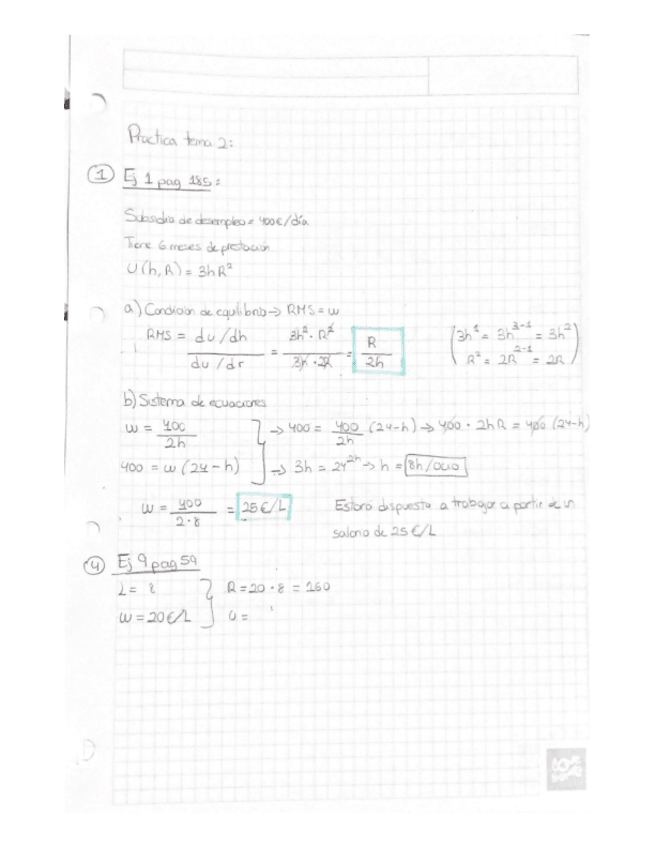 Practica tema 2:
① Ej 1 pag 185:
Subsidio de desempleo = 400€/día
Tiene 6 meses de prestación
U(h,R) = 3hR²
a) Condición de equilibrio → RMS = w
RMS = du/dh / du/dr = 3h² · R² / 3h · 2R = R / 2h
(3h¹ = 3h³⁻¹ = 3h²
R² = 2R²⁻¹ = 2R)
b) Sistema de ecuaciones
w = 400 / 2h → 400 = 400 / 2h (24-h) → 400 · 2hR = 400 (24-h)
400 = w (24-h) → 3h = 24 → h = 8h/ocio
w = 400 / 2·8 = 25€/L
Estará dispuesta a trabajar a partir de un
salario de 25€/L
④ Ej 9 pag 59
L = 8 R = 20 · 8 = 160
w = 20€/L U =